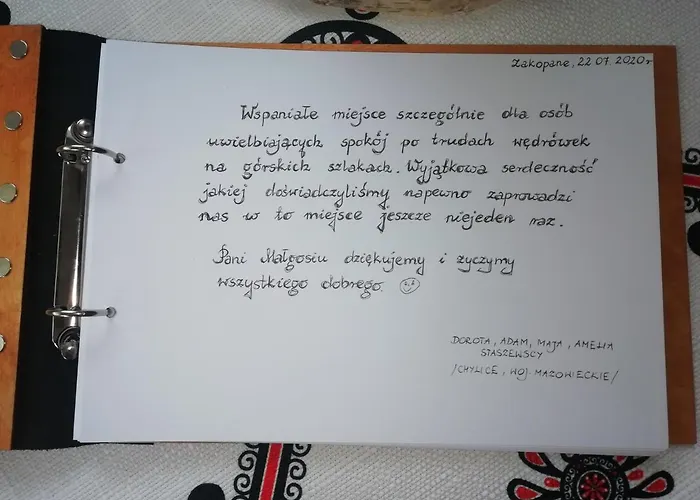 Zakopane, 22.07.2020r
Wspaniałe miejsce szczególnie dla osób
uwielbiających spokój po trudach wędrówek
na górskich szlakach. Wyjątkowa serdeczność
jakiej doświadczyliśmy napewno zaprowadzi
nas w to miejsce jeszcze niejeden raz.
Pani Małgosiu dziękujemy i życzymy
wszystkiego dobrego.
DOROTA, ADAM, MAJA, AMELIA
STASZEWSCY
/CHYLICE, WOJ. MAZOWIECKIE/